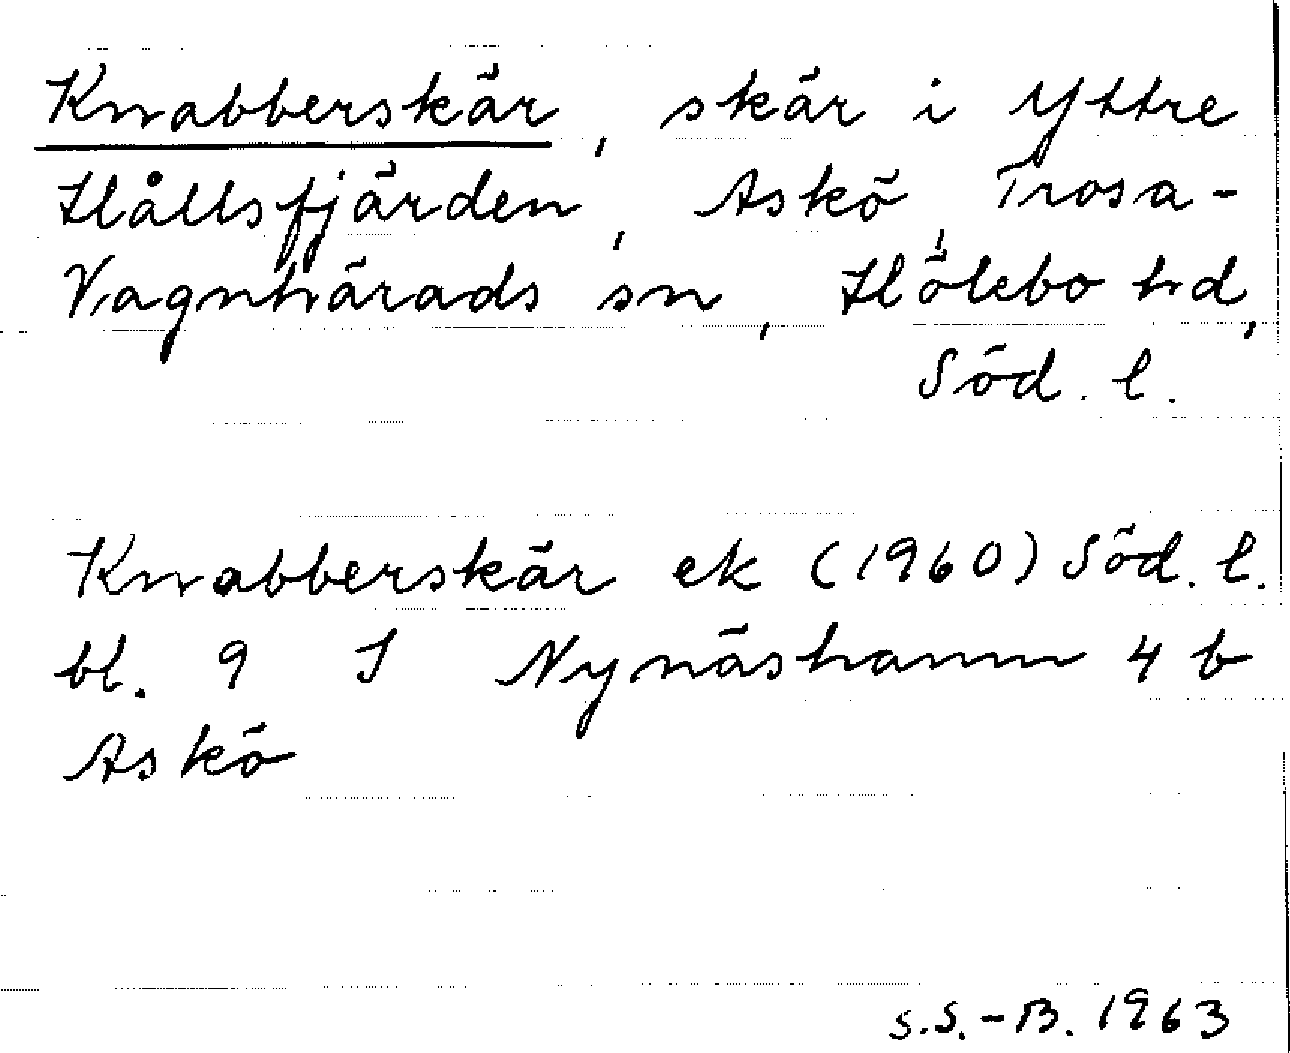 Knabberskär, skär i Yttre
Hållsfjärden, Askö, Trosa-
Vagnhärads sn, Hölebo hd,
Söd. l.
Knabberskär ek (1960) Söd. l.
bl. 9 I Nynäshamn 4 b
Askö
S.S.-B. 1963